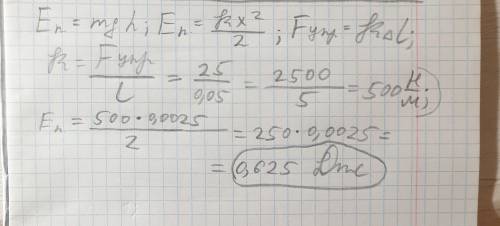 Eп = mgh; Eп = kx²/2; Fупр = kΔl;
k = Fупр/l = 25/0,05 = 2500/5 = 500 Н/м;
Eп = 500·0,0025/2 = 250·0,0025 =
= 0,625 Дж